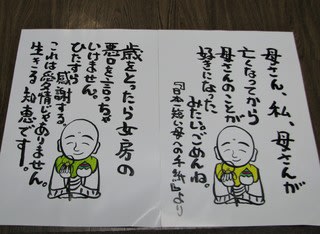 母さん、私、母さんが
亡くなってから
母さんのことが
好きになった
みたい。ごめんね。
『日本一短い母への手紙』より
歳をとったら女房の
悪口を言っちゃ
いけません。
ひたすら
感謝する
これは愛情じゃありません。
生きる知恵です。